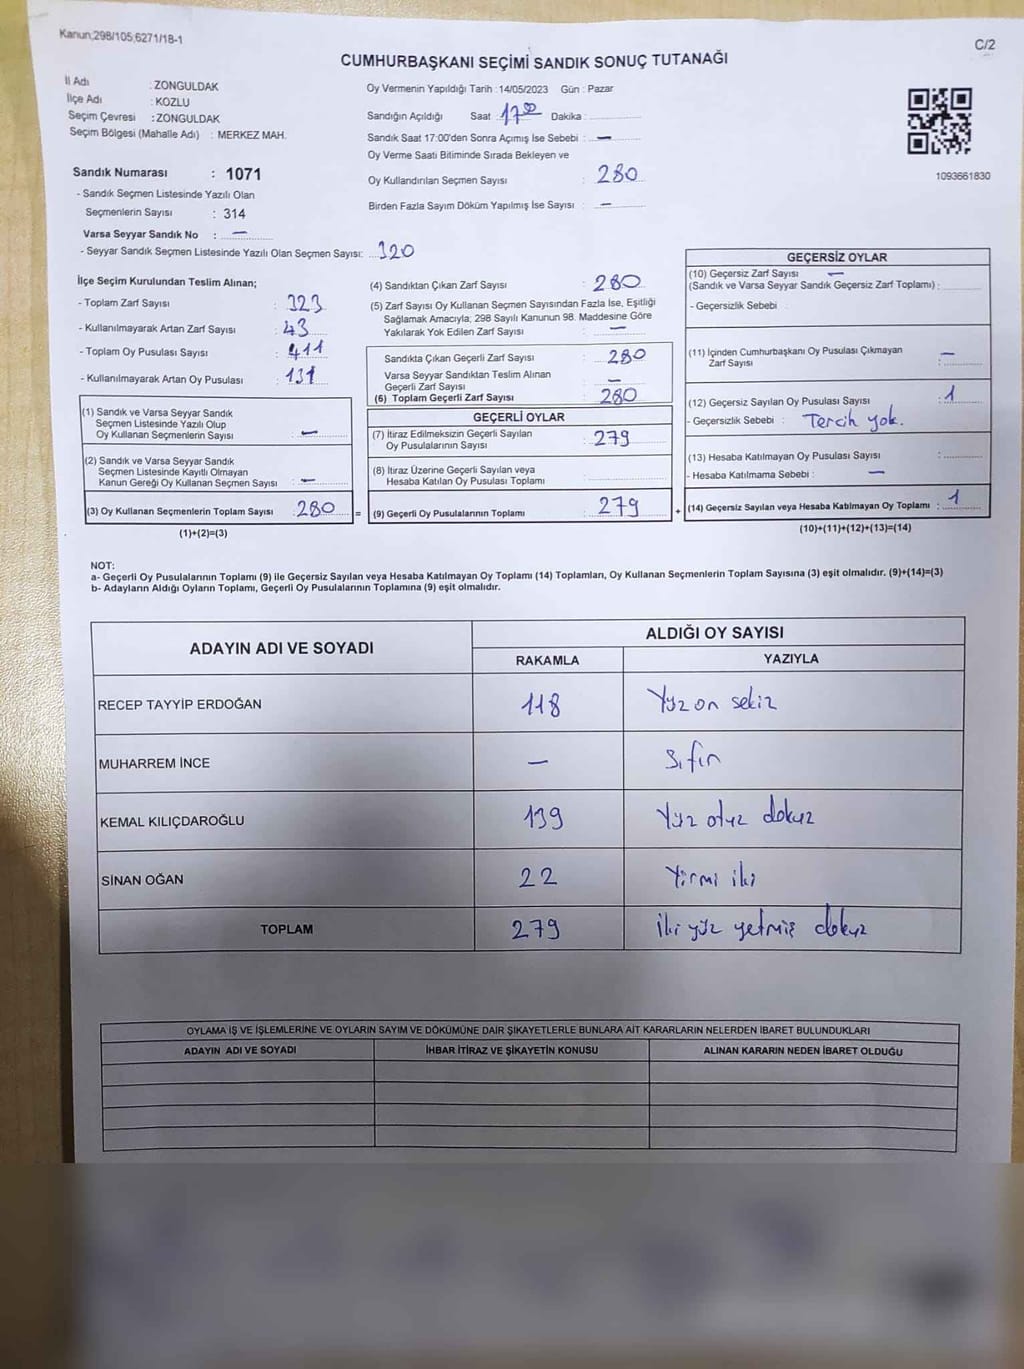 Kanun;298/105;6271/18-1
C/2
CUMHURBAŞKANI SEÇİMİ SANDIK SONUÇ TUTANAĞI
İl Adı : ZONGULDAK
İlçe Adı : KOZLU
Seçim Çevresi : ZONGULDAK
Seçim Bölgesi (Mahalle Adı) : MERKEZ MAH.
Oy Vermenin Yapıldığı Tarih : 14/05/2023 Gün : Pazar
Sandığın Açıldığı Saat : 17⁰⁰ Dakika :
Sandık Saat 17:00'den Sonra Açımış İse Sebebi : —
Oy Verme Saati Bitiminde Sırada Bekleyen ve
Oy Kullandırılan Seçmen Sayısı : 280
Birden Fazla Sayım Döküm Yapılmış İse Sayısı : —
1093661830
Sandık Numarası : 1071
- Sandık Seçmen Listesinde Yazılı Olan
Seçmenlerin Sayısı : 314
Varsa Seyyar Sandık No : —
- Seyyar Sandık Seçmen Listesinde Yazılı Olan Seçmen Sayısı: 320
İlçe Seçim Kurulundan Teslim Alınan;
- Toplam Zarf Sayısı : 323
- Kullanılmayarak Artan Zarf Sayısı : 43
- Toplam Oy Pusulası Sayısı : 411
- Kullanılmayarak Artan Oy Pusulası : 131
(1) Sandık ve Varsa Seyyar Sandık
Seçmen Listesinde Yazılı Olup
Oy Kullanan Seçmenlerin Sayısı : —
(2) Sandık ve Varsa Seyyar Sandık
Seçmen Listesinde Kayıtlı Olmayan
Kanun Gereği Oy Kullanan Seçmen Sayısı : —
(3) Oy Kullanan Seçmenlerin Toplam Sayısı : 280 =
(1)+(2)=(3)
(4) Sandıktan Çıkan Zarf Sayısı : 280
(5) Zarf Sayısı Oy Kullanan Seçmen Sayısından Fazla İse, Eşitliği
Sağlamak Amacıyla; 298 Sayılı Kanunun 98. Maddesine Göre
Yakılarak Yok Edilen Zarf Sayısı : —
Sandıkta Çıkan Geçerli Zarf Sayısı : 280
Varsa Seyyar Sandıktan Teslim Alınan
Geçerli Zarf Sayısı : —
(6) Toplam Geçerli Zarf Sayısı : 280
GEÇERLİ OYLAR
(7) İtiraz Edilmeksizin Geçerli Sayılan
Oy Pusulalarının Sayısı : 279
(8) İtiraz Üzerine Geçerli Sayılan veya
Hesaba Katılan Oy Pusulası Toplamı :
(9) Geçerli Oy Pusulalarının Toplamı : 279 +
GEÇERSİZ OYLAR
(10) Geçersiz Zarf Sayısı —
(Sandık ve Varsa Seyyar Sandık Geçersiz Zarf Toplamı) :
- Geçersizlik Sebebi
(11) İçinden Cumhurbaşkanı Oy Pusulası Çıkmayan
Zarf Sayısı : —
(12) Geçersiz Sayılan Oy Pusulası Sayısı : 1
- Geçersizlik Sebebi : Tercih yok.
(13) Hesaba Katılmayan Oy Pusulası Sayısı :
- Hesaba Katılmama Sebebi : —
(14) Geçersiz Sayılan veya Hesaba Katılmayan Oy Toplamı : 1
(10)+(11)+(12)+(13)=(14)
NOT:
a- Geçerli Oy Pusulalarının Toplamı (9) ile Geçersiz Sayılan veya Hesaba Katılmayan Oy Toplamı (14) Toplamları, Oy Kullanan Seçmenlerin Toplam Sayısına (3) eşit olmalıdır. (9)+(14)=(3)
b- Adayların Aldığı Oyların Toplamı, Geçerli Oy Pusulalarının Toplamına (9) eşit olmalıdır.
ADAYIN ADI VE SOYADI
ALDIĞI OY SAYISI
RAKAMLA YAZIYLA
RECEP TAYYİP ERDOĞAN 118 Yüz on sekiz
MUHARREM İNCE — Sıfır
KEMAL KILIÇDAROĞLU 139 Yüz otuz dokuz
SİNAN OĞAN 22 Yirmi iki
TOPLAM 279 iki yüz yetmiş dokuz
OYLAMA İŞ VE İŞLEMLERİNE VE OYLARIN SAYIM VE DÖKÜMÜNE DAİR ŞİKAYETLERLE BUNLARA AİT KARARLARIN NELERDEN İBARET BULUNDUKLARI
ADAYIN ADI VE SOYADI İHBAR İTİRAZ VE ŞİKAYETİN KONUSU ALINAN KARARIN NEDEN İBARET OLDUĞU